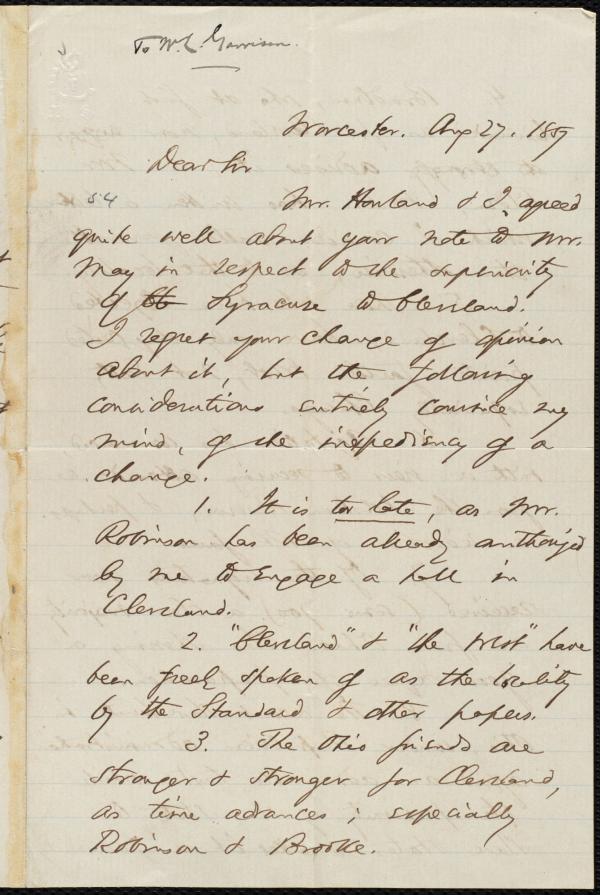 To W. L. Garrison.
Worcester. Aug 27. 1857
Dear Sir
54
Mr. Howland & I agreed
quite well about your note to Mr.
May in respect to the superiority
of Syracuse to Cleveland.
I regret your change of opinion
about it, but the following
considerations entirely convince my
mind, of the inexpediency of a
change.
1. It is too late, as Mr.
Robinson has been already authorized
by me to engage a hall in
Cleveland.
2. "Cleveland" & "the West" have
been freely spoken of as the locality
by the Standard & other papers.
3. The Ohio friends are
stronger & stronger for Cleveland,
as time advances; especially
Robinson & Brooke.